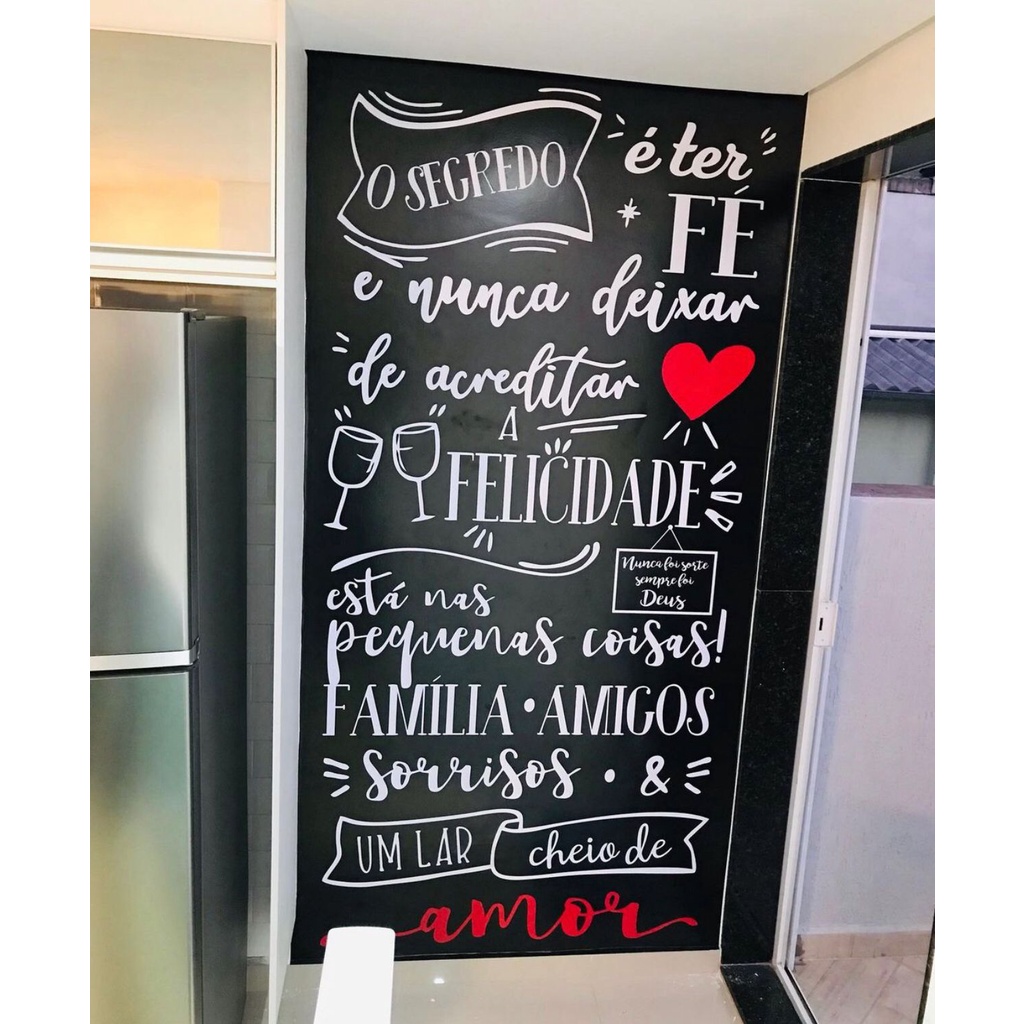 O SEGREDO
é ter
FÉ
e nunca deixar
de acreditar
A
FELICIDADE
Nunca foi sorte
sempre foi
Deus
está nas
pequenas coisas!
FAMÍLIA • AMIGOS
sorrisos • &
UM LAR cheio de
amor